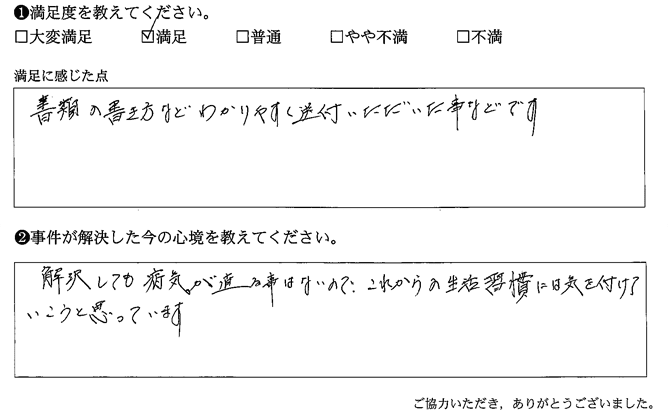 ❶満足度を教えてください。
□大変満足 ☑満足 □普通 □やや不満 □不満
満足に感じた点
書類の書き方などわかりやすく送付いただいた事などです
❷事件が解決した今の心境を教えてください。
解決しても病気が直る事はないので、これからの生活習慣には気を付けて
いこうと思っています
ご協力いただき，ありがとうございました。